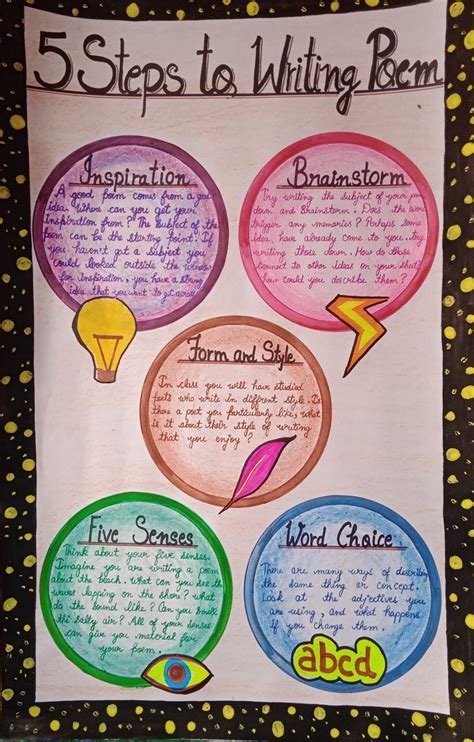 5 Steps to Writing Poem
Inspiration
A good poem comes from a god
idea. Where can you get your
inspiration from? The subject of the
poem can be the starting point. If
you haven't got a subject you
could looked outside the
for inspiration, you have a strong
idea that you want to get across
Brainstorm
Try writing the subject of your poem
down and Brainstorm. Does the word
trigger any memories? Perhaps some
idea have already come to you. try
writing those down. How do those
connect to other ideas on your sheet
how could you describe them?
Form and Style
In class you will have studied
poets who write in diffrent style. Is
there a poet you particularly like, what
is it about their style of writing
that you enjoy?
Five Senses
Think about your five senses.
Imagine you are writing a poem
about the beach. what can you see the
waves lapping on the shore? what
do the sound like? Can you smell
the salty air? All of your senses
can give you material for
your poem.
Word Choice
There are many ways of describing
the same thing or concept.
Look at the adjectives you
are using, and what happens
if you change them.
abcd